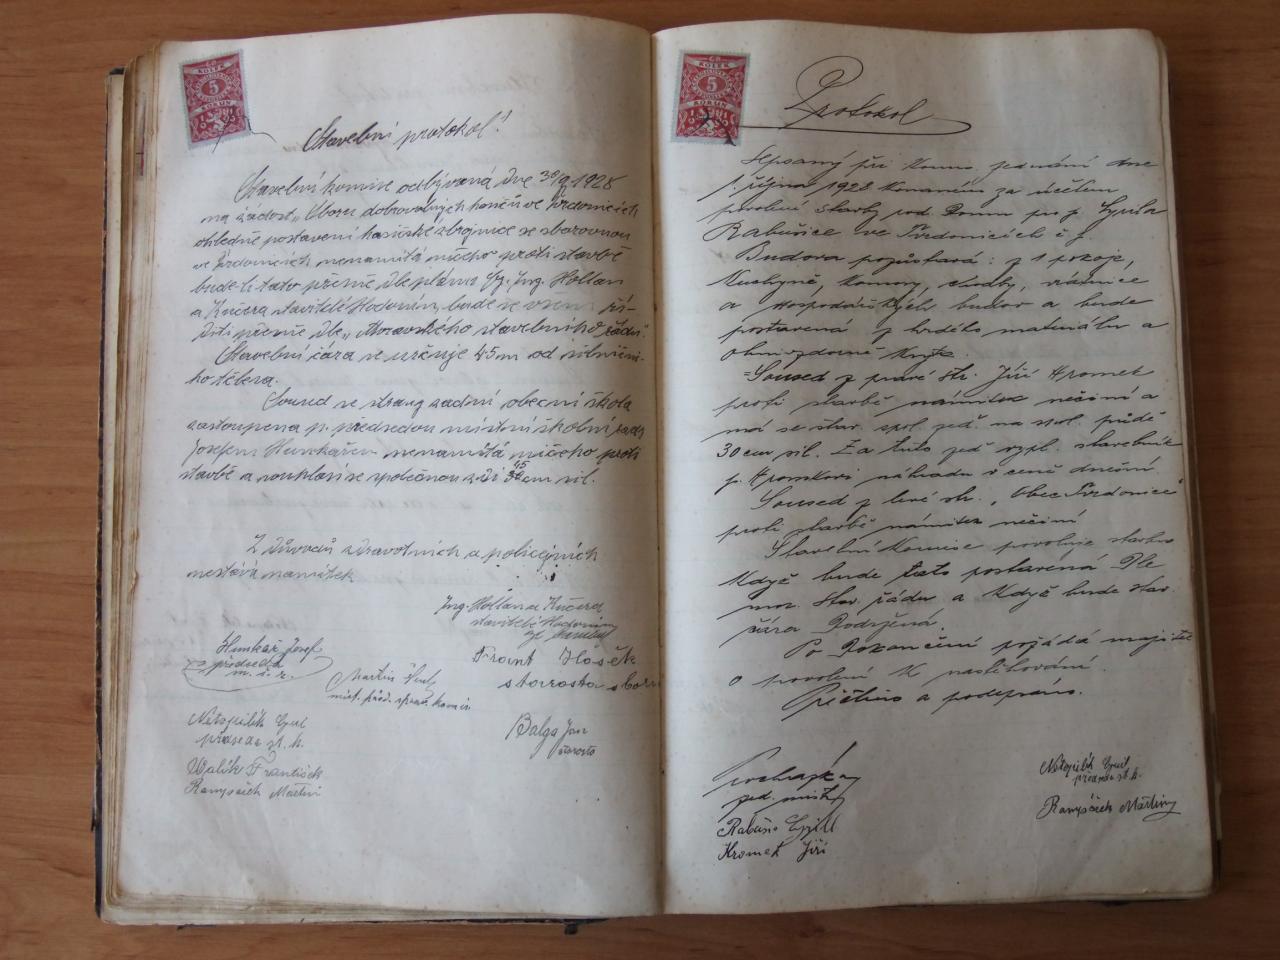 KOLEK
5
KORUN
Stavební protokol!
Stavební komise odbývaná dne 30/9 1928
na žádost „Sboru dobrovolných hasičů ve Tvrdonicích
ohledně postavení hasičské zbrojnice se sborovnou
ve Tvrdonicích nenamítá ničeho proti stavbě
bude-li tato přesně dle plánu Ing. Hollan
a Kučera stavitelé Hodonín, bude se vším ří-
diti přesně dle „Moravského stavebního řádu".
Stavební čára se určuje 45m od silniční-
ho tělesa.
Soused ze strany zadní obecní škola
zastoupena p. předsedou místní školní rady
Josefem Hunkařem nenamítá ničeho proti
stavbě a souhlasí se společnou zdí 45 cm sil.
Z důvodů zdravotních a policejních
nestává námitek
Ing. Hollan a Kučera
stavitelé Hodonín
Hunkař Josef
předseda
m. š. r.
Frant Hošek
starosta sboru
Martin
míst. před. správ. komise
Netopilík Cyril
předseda st. k.
Balga Jan
starosta
Valík František
Rampáček Martin
KOLEK
5
KORUN
Protokol
Sepsaný při kom. jednání dne
1. října 1928 konaném za účelem
povolení stavby rod. domu pro p. Cyrila
Rabušice ve Tvrdonicích č.
Budova pozůstává: z 1 pokoje,
kuchyně, komory, chodby, síňnice
a hospodářských budov a bude
postavená z tvrdého materiálu a
ohnivzdorně kryta.
Soused z pravé str. Jiří Hromek
proti stavbě námitek nečiní a
má se stav. spol. zeď na spol. půdě
30 cm sil. Za tuto zeď vypl. stavebník
p. Hromkovi náhradu v ceně dnešní.
Soused z levé str. „Obec Tvrdonice"
proti stavbě námitek nečiní
Stavební komise povoluje stavbu
když bude tato postavená dle
mor. stav. řádu a když bude stav.
čára dodržena.
Po dokončení požádá majitel
o povolení k nastěhování.
Přečteno a podepsáno.
zed. mistr
Netopilík Cyril
předseda st. k.
Rabušic Cyrill
Rampáček Martin
Hromek Jiří